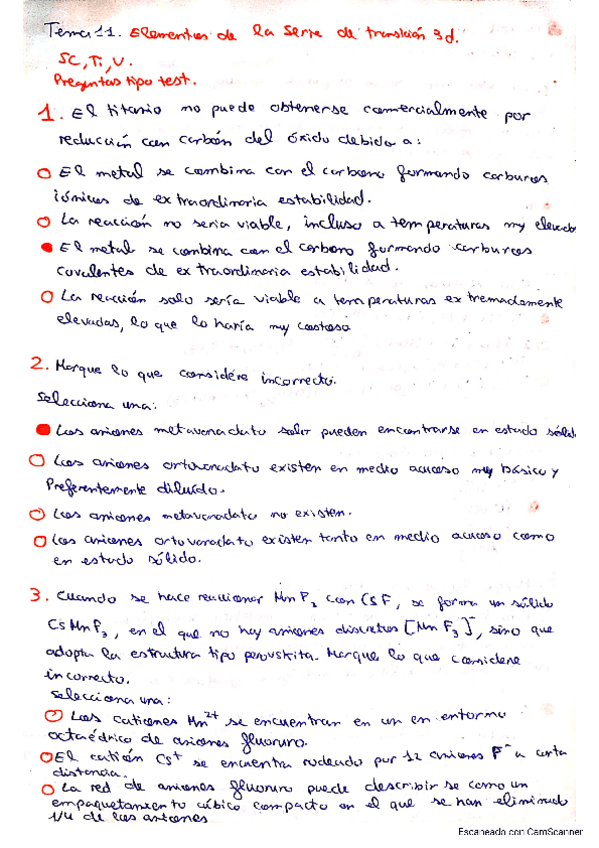 Tema 11. Elementos de la serie de transición 3d.
SC, Ti, V.
Preguntas tipo test.
1. El titanio no puede obtenerse comercialmente por
reducción con carbón del óxido debido a:
El metal se combina con el carbono formando carburos
iónicos de extraordinaria estabilidad.
La reacción no sería viable, incluso a temperaturas my elevada
El metal se combina con el carbono formando carburos
covalentes de extraordinaria estabilidad.
La reacción solo sería viable a temperaturas extremadamente
elevadas, lo que lo haría my costoso
2. Marque lo que considere incorrecto.
Selecciona una:
Los aniones metavanadato solo pueden encontrarse en estado sólid
Los aniones ortovanadato existen en medio acuoso my básico y
Preferentemente diluído.
Los aniones metavanadato no existen.
Los aniones ortovanadato existen tanto en medio acuoso como
en estado sólido.
3. Cuando se hace reaccionar MnF2 con CsF, se forma un sólido
CsMnF3, en el que no hay aniones discretos [MnF3]⁻, sino que
adopta la estructura tipo perovskita. Marque lo que considere
incorrecto.
Selecciona una:
Los cationes Mn²⁺ se encuentran en un en entorno
octaédrico de aniones fluoruro.
El catión Cs⁺ se encuentra rodeado por 12 aniones F⁻ a cierta
distancia.
La red de aniones fluoruro puede describirse como un
empaquetamiento cúbico compacto en el que se han eliminado
1/4 de los aniones
Escaneado con CamScanner